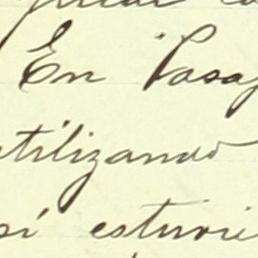 En Pasa
utilizando
sí estuvie